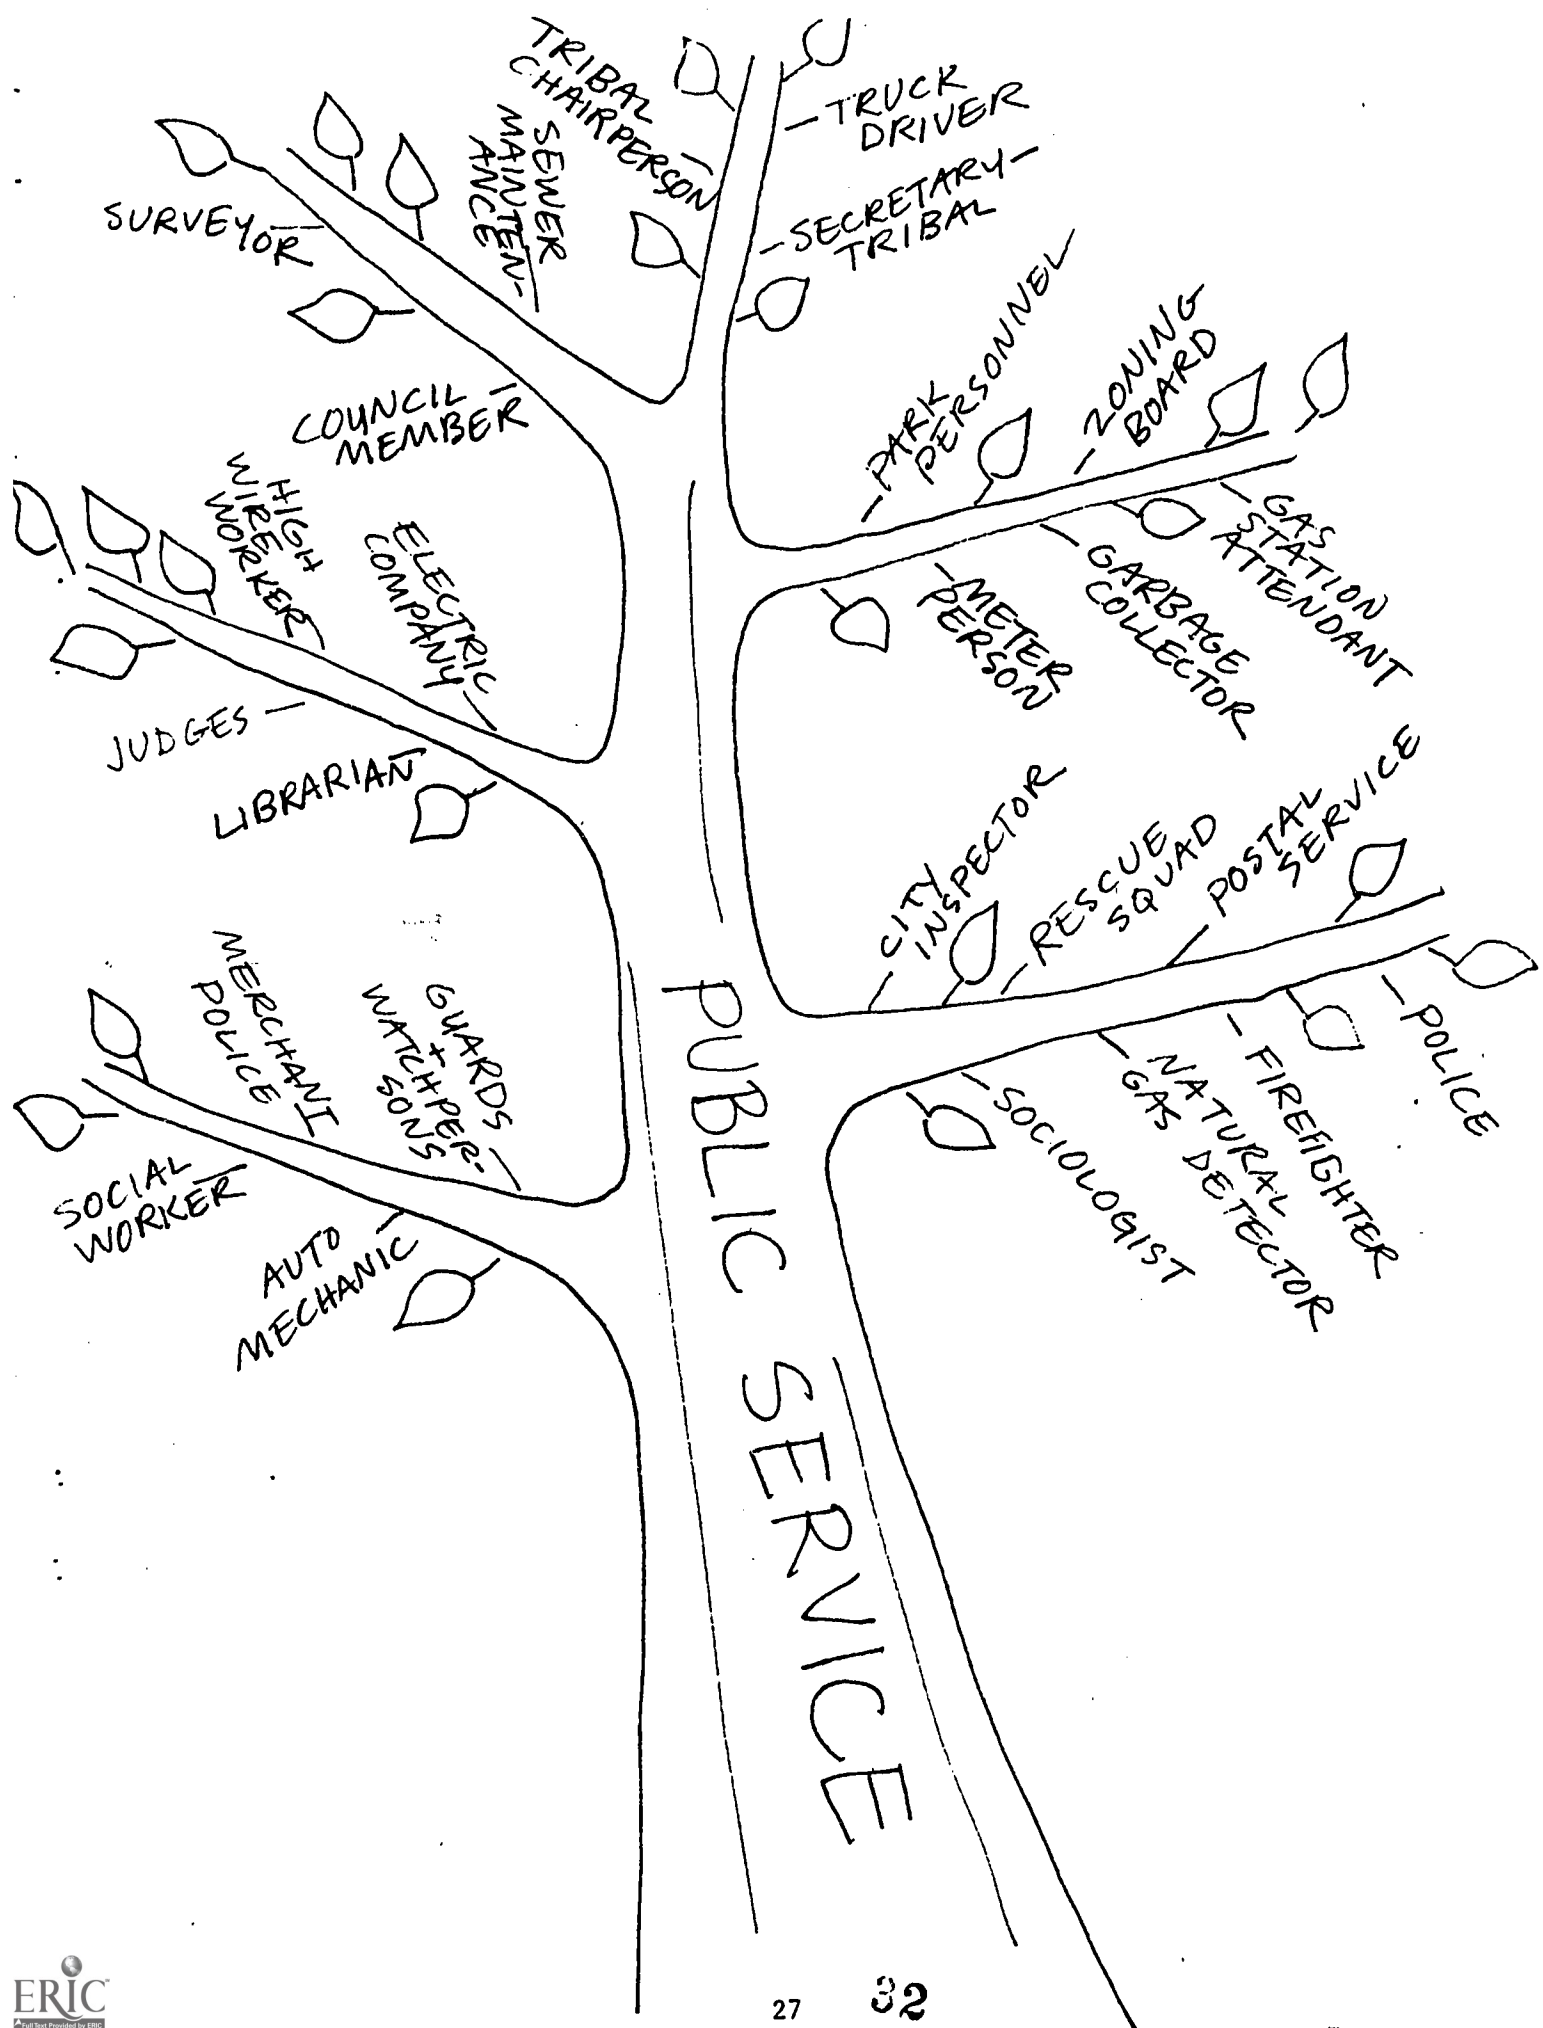 TRIBAL
CHAIRPERSON
TRUCK
DRIVER
SEWER
MAINTEN-
ANCE
SECRETARY
TRIBAL
SURVEYOR
COUNCIL
MEMBER
PARK
PERSONNEL
ZONING
BOARD
GAS
STATION
ATTENDANT
GARBAGE
COLLECTOR
METER
PERSON
HIGH
WIRE
WORKER
ELECTRIC
COMPANY
JUDGES
LIBRARIAN
CITY
INSPECTOR
RESCUE
SQUAD
POSTAL
SERVICE
POLICE
FIREFIGHTER
NATURAL
GAS DETECTOR
SOCIOLOGIST
MERCHANT
POLICE
GUARDS
+
WATCHPER-
SONS
SOCIAL
WORKER
AUTO
MECHANIC
PUBLIC SERVICE
ERIC
Full Text Provided by ERIC
27
32